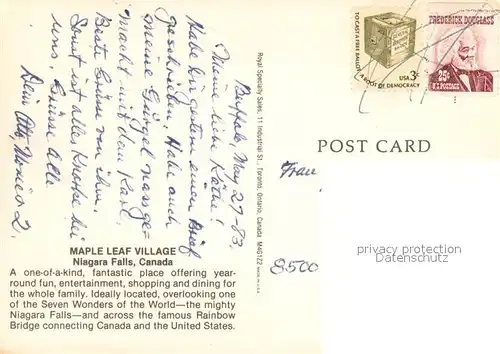 Buffalo, May 27-83.
Meine liebe Käthe!
Habe dir gestern einen Brief
geschrieben, Habe auch
meine Gurgel nassge-
macht mit dem Karl,
Beste Grüsse von ihm,
Sonst ist alles beim
uns. Grüsse alle
Dein Otto,
Royal Specialty Sales, 11 Industrial St., Toronto, Ontario, Canada M4G1Z2
TO CAST A FREE BALLOT A ROOT OF DEMOCRACY
USA 3c
FREDERICK DOUGLASS
25c
U.S. POSTAGE
POST CARD
Frau
8500
privacy protection
Datenschutz
MAPLE LEAF VILLAGE
Niagara Falls, Canada
A one-of-a-kind, fantastic place offering year-
round fun, entertainment, shopping and dining for
the whole family. Ideally located, overlooking one
of the Seven Wonders of the World—the mighty
Niagara Falls—and across the famous Rainbow
Bridge connecting Canada and the United States.